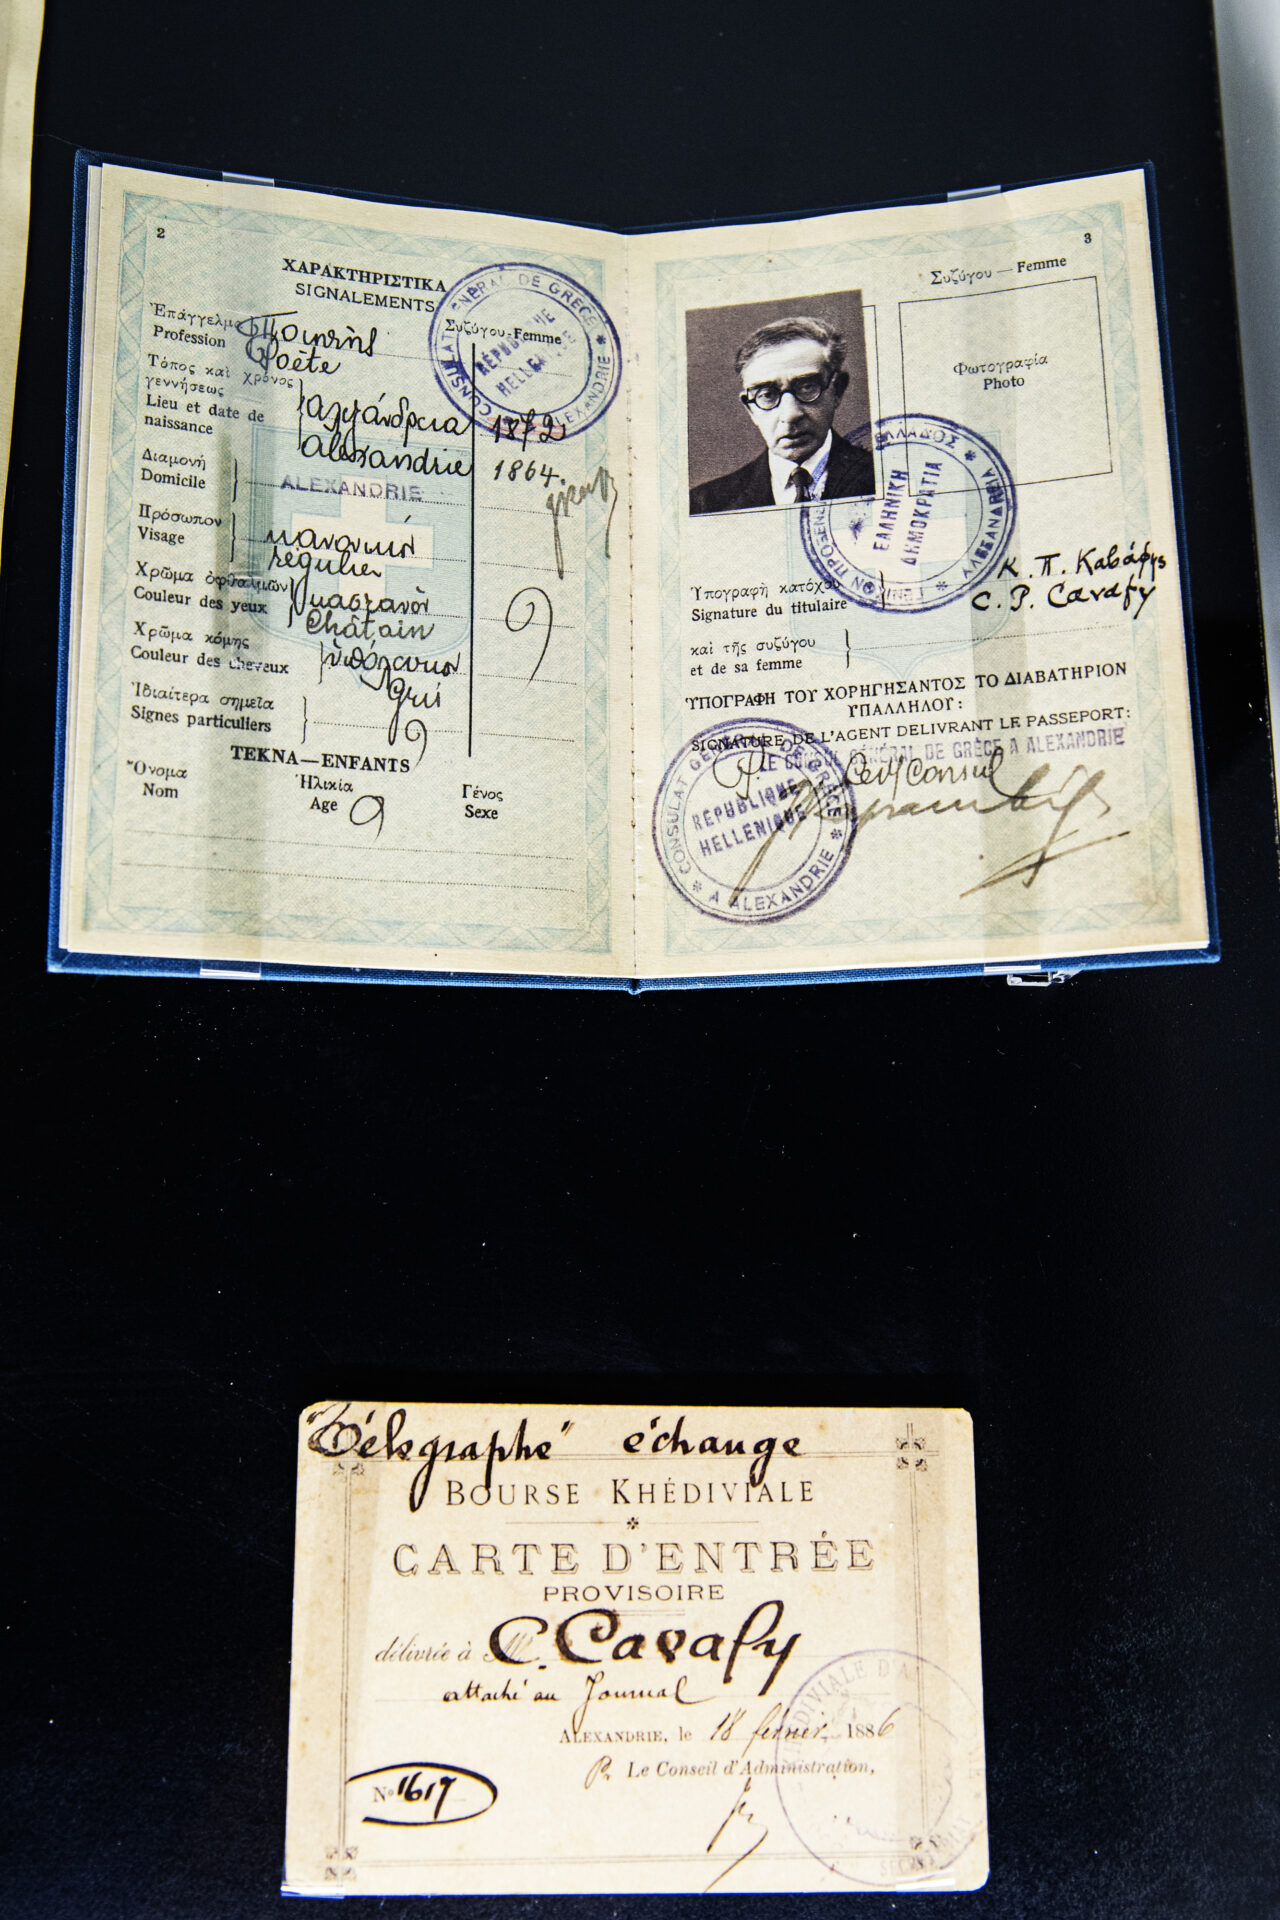 2
ΧΑΡΑΚΤΗΡΙΣΤΙΚΑ
SIGNALEMENTS
Ἐπάγγελμα Ποιητής
Profession Poète
Συζύγου-Femme
CONSULAT GÉNÉRAL DE GRÈCE * A ALEXANDRIE *
RÉPUBLIQUE
HELLENIQUE
Τόπος καὶ χρόνος
γεννήσεως Αλεξάνδρεια 1872
Lieu et date de
naissance Alexandrie 1864.
Διαμονή
Domicile ALEXANDRIE
Πρόσωπον κανονικόν
Visage régulier
Χρῶμα ὀφθαλμῶν καστανὸν
Couleur des yeux Châtain
Χρῶμα κόμης ὑπόλευκον
Couleur des cheveux Gris
Ἰδιαίτερα σημεῖα
Signes particuliers
ΤΕΚΝΑ—ENFANTS
Ὄνομα Ἡλικία Γένος
Nom Age Sexe
3
Συζύγου — Femme
Φωτογραφία
Photo
ΕΛΛΑΔΟΣ * ΑΛΕΞΑΝΔΡΕΙΑ *
ΕΛΛΗΝΙΚΗ
ΔΗΜΟΚΡΑΤΙΑ
Ὑπογραφὴ κατόχου Κ. Π. Καβάφης
Signature du titulaire C. P. Cavafy
καὶ τῆς συζύγου
et de sa femme
ὙΠΟΓΡΑΦΗ ΤΟΥ ΧΟΡΗΓΗΣΑΝΤΟΣ ΤΟ ΔΙΑΒΑΤΗΡΙΟΝ
ΥΠΑΛΛΗΛΟΥ:
SIGNATURE DE L'AGENT DELIVRANT LE PASSEPORT:
LE CONSUL GÉNÉRAL DE GRÈCE A ALEXANDRIE
CONSULAT GENERAL DE GRÈCE * A ALEXANDRIE *
RÉPUBLIQUE
HELLENIQUE
"Télégraphe" échange
BOURSE KHÉDIVIALE
CARTE D'ENTRÉE
PROVISOIRE
délivrée à M. C. Cavafy
attaché au Journal
ALEXANDRIE, le 18 février 1886
Pr Le Conseil d'Administration,
No 1617